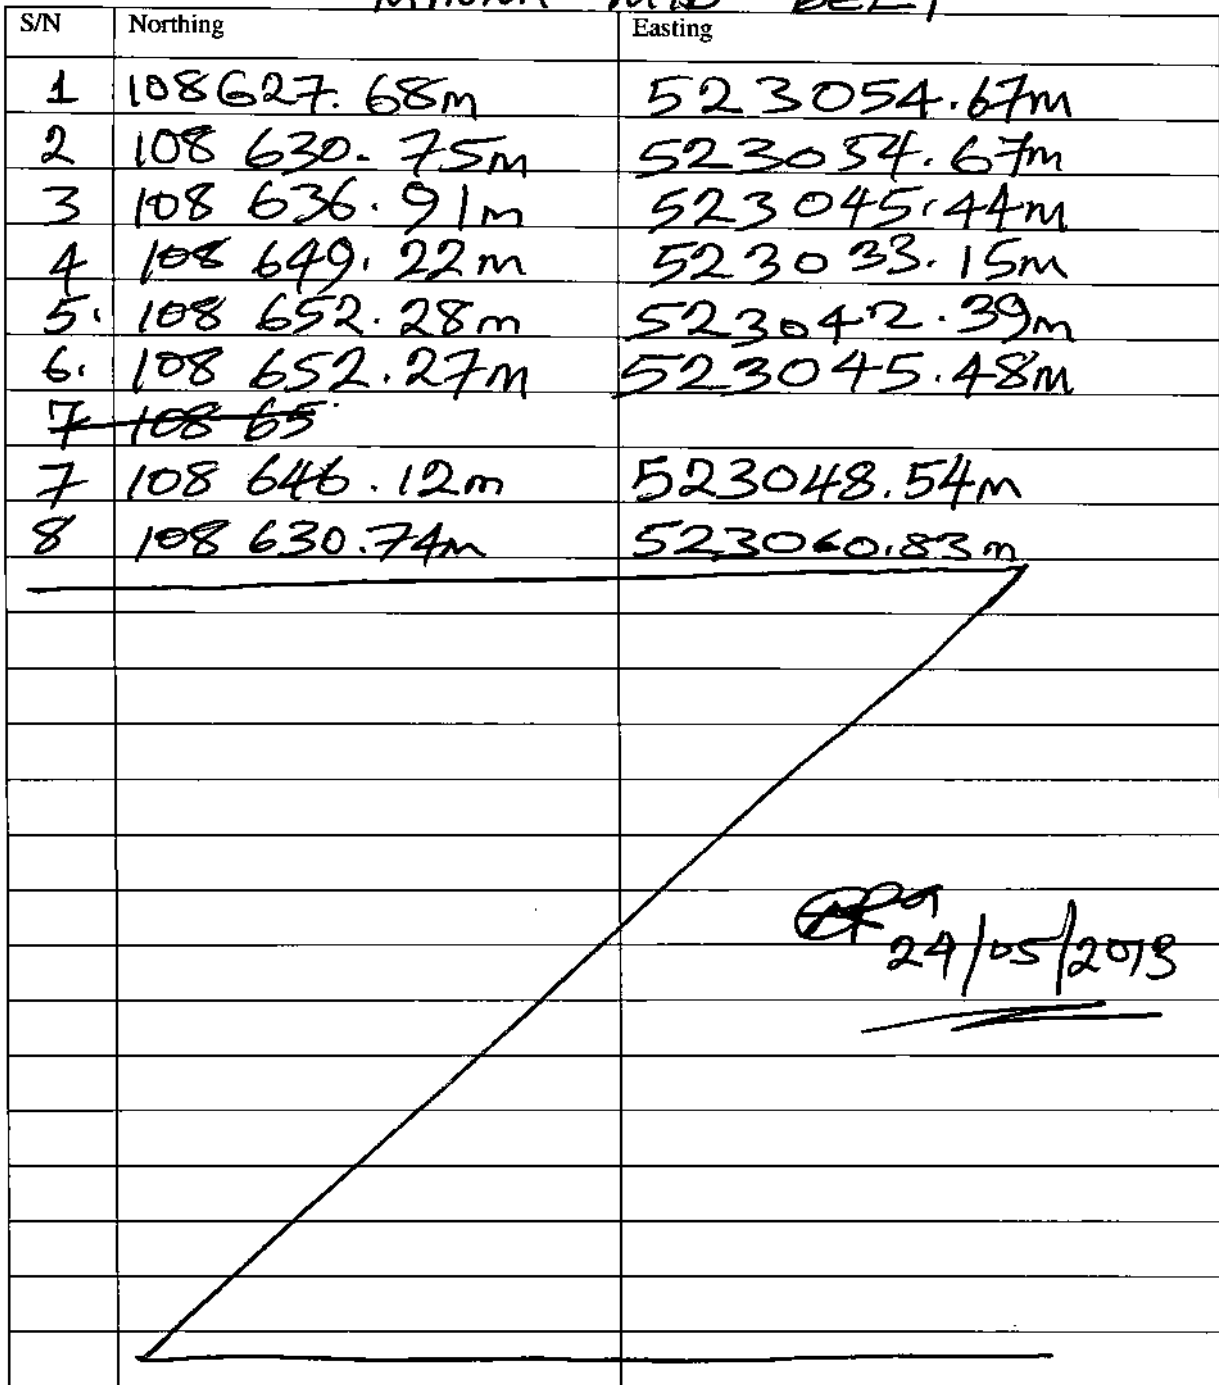 MID BELT
S/N Northing Easting
1 108627.68m 523054.67m
2 108 630.75m 523054.67m
3 108 636.91m 523045.44m
4 108 649.22m 523033.15m
5. 108 652.28m 523042.39m
6. 108 652.27m 523045.48m
7 108 65
7 108 646.12m 523048.54m
8 108 630.74m 523060.83m
24/05/2013